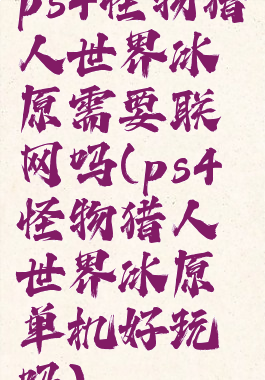 ps4怪物猎
人世界冰
原需要联
网吗(ps4
怪物猎人
世界冰原
单机好玩
吗)